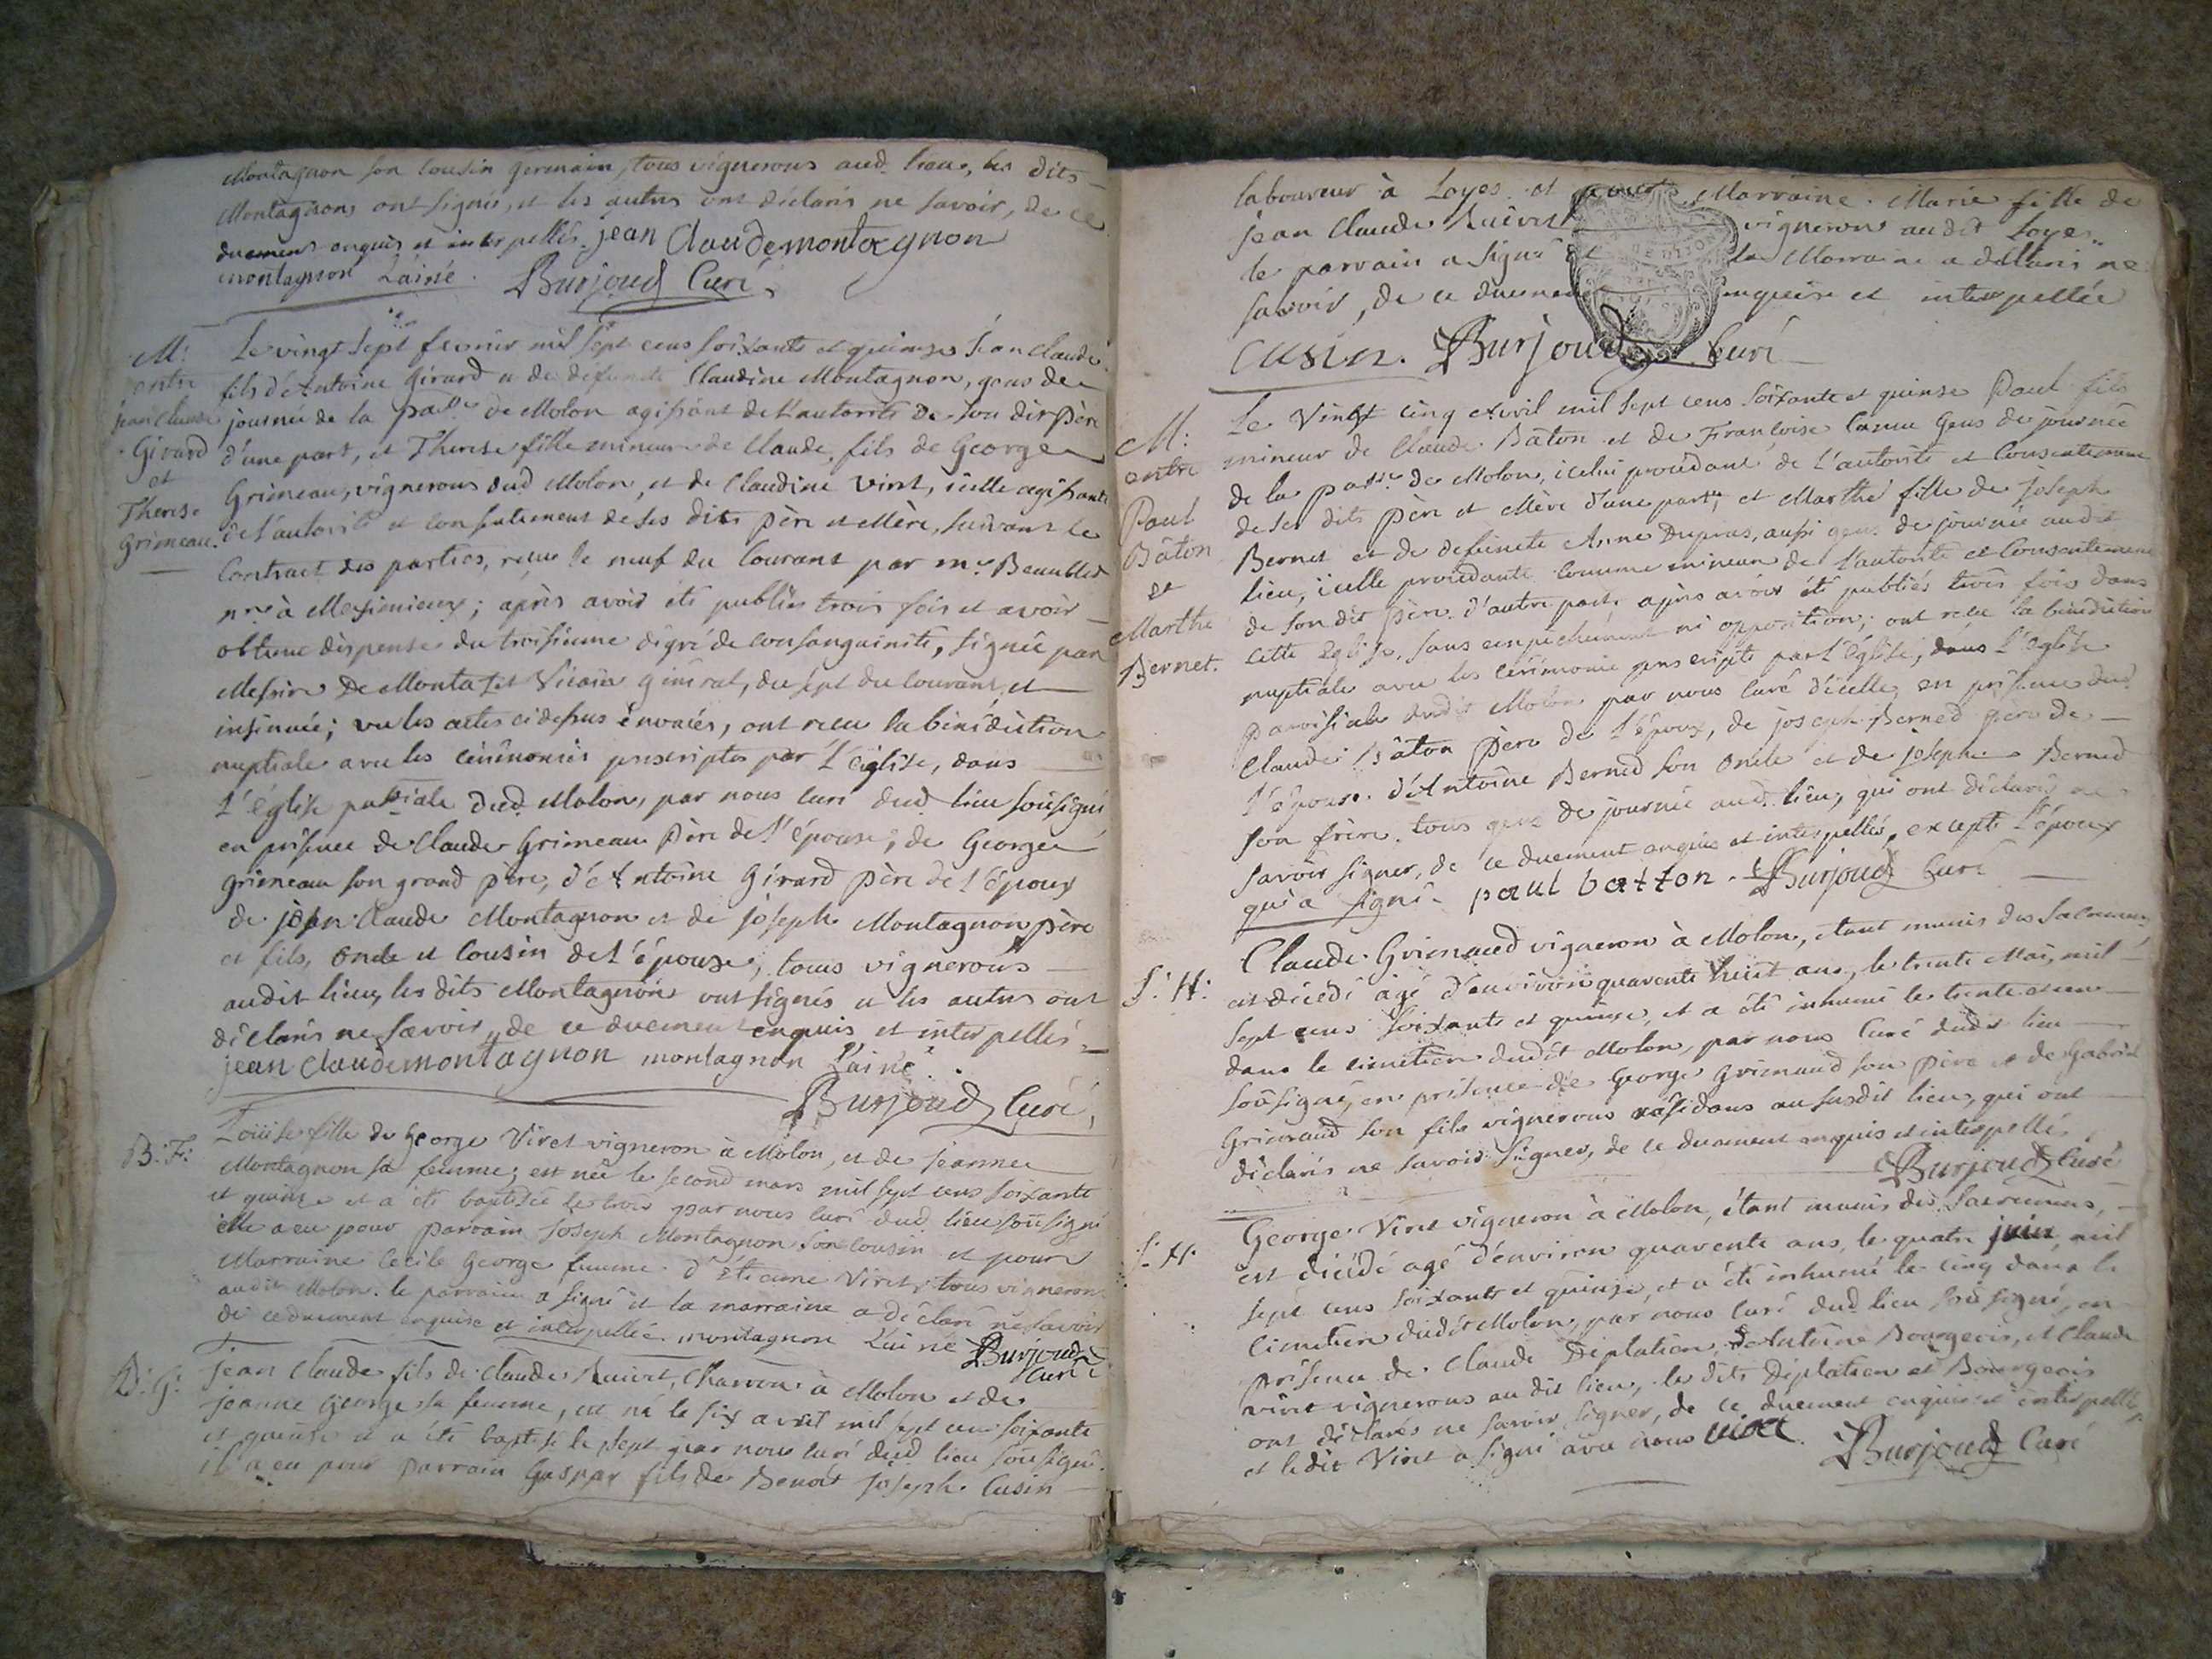 Montagnon son cousin germain, tous vignerons aud. lieu, les dits
Montagnons ont signés, et les autres ont déclarés ne savoir, de ce
duement enquis et interpellés. jean Claude montagnon
montagnon L'ainé. Burjoud Curé,
M:
entre
jean claude
Girard
et
Therese
Grimeau.
Le vingt sept fevrier mil sept cens soixante et quinze Jean Claude
fils d'Antoine Girard et de defunte Claudine Montagnon, gens de
journée de la passe de Molon agissant de l'autorité de son dit père
d'une part, et Therese fille mineure de Claude, fils de George
Grimeau, vignerons dud Molon, et de Claudine Viret, icelle agissante
de l'autorité et consentement de ses dits père et Mère, suivant le
Contract des parties, reçu le neuf du Courant par me
nre à Meximieux; après avoir été publiés trois fois et avoir
obtenu dispense du troisieme dégré de consanguinité, signée par
Messire De Montalet Vicaire géneral, du sept du courant, et
insinuée; vu les actes cidessus énoncés, ont reçu la bénédiction
nuptiale avec les cérémonies prescriptes par L'église, dans
L'église passiale dud Molon, par nous curé dud lieu soûsigné
en présence de Claude Grimeau père de l'épouse, de George
Grimeau son grand père, d'Antoine Girard père de l'époux
de jean Claude Montagnon et de joseph Montagnon père
et fils, oncle et cousin de l'épouse, tous vignerons
audit lieu, les dits Montagnon ont signés et les autres ont
déclarés ne savoir, de ce duement enquis et interpellés.
jean Claude montagnon montagnon L'ainé.
Burjoud Curé,
B: F:
Loüise fille de George Viret vigneron à Molon, et de jeanne
Montagnon sa femme, est née le second mars mil sept cens soixante
et quinze et a été baptisée le trois par nous curé dud lieu soûsigné
elle a eu pour parrain joseph Montagnon son cousin et pour
Marraine Cecile George femme d'Etienne Viret, tous vignerons
audit Molon. le parrain a signé et la marraine a déclaré ne savoir
de ce duement enquise et interpellée. montagnon L'ainé Burjoud
Curé
B: G:
jean Claude fils de Claude Ruivet, Charron à Molon et de
jeanne George sa femme, est né le six avril mil sept cens soixante
et quinze et a été baptisé le sept par nous curé dud lieu soûsigné
il a eu pour parrain Gaspar fils de Benoit joseph Cusin
laboureur à Loyes et pour Marraine Marie fille de
jean Claude Ruivet vigneron audit Loyes
le parrain a signé et la Marraine a déclaré ne
savoir, de ce duement enquise et interpellée
Cusin. Burjoud Curé
M:
entre
Paul
Bâton
et
Marthe
Bernet.
Le Vingt cinq Avril mil sept cens soixante et quinse Paul fils
mineur de Claude Bâton et de Françoise Gens de journée
de la passe de Molon, icelui procédant de l'autorité et Consentement
de ses dits père et Mère d'une part, et Marthe fille de joseph
Bernet et de defuncte Anne Dupras, aussi gens de journée audit
lieu, icelle procédante comme mineure de l'autorité et Consentement
de son dit père d'autre part, après avoir été publiés trois fois dans
cette Eglise, sans empêchement ni opposition, ont reçu la bénédiction
nuptiale avec les cérémonies prescriptes par L'église, dans l'église
paroissiale dudit Molon par nous curé d'icelle, en présence dud
Claude Bâton père de l'époux, de joseph Berned père de
l'épouse. d'Antoine Berned son oncle et de joseph Berned
son frère. tous gens de journée aud. lieu, qui ont déclarés ne
savoir signer, de ce duement enquis et interpellés, excepté L'époux
qui a signé. paul batton. Burjoud Curé
S: H:
Claude Grimaud vigneron à Molon, étant munis des sacremens
est décédé agé d'environ quarente huit ans, le trente Mai, mil
sept cens soixante et quinze, et a été inhumé le trente et un
dans le cimetière dudit Molon, par nous Curé dudit lieu
soûsigné, en présence de George Grimaud son père et de Gabriel
Grimaud son fils vignerons résidans au susdit lieu, qui ont
déclarés ne savoir signer, de ce duement enquis et interpellés.
Burjoud Curé
S: H:
George Viret vigneron à Molon, étant munis des Sacremens,
est décédé agé d'environ quarente ans, le quatre juin mil
sept cens soixante et quinze, et a été inhumé le cinq dans le
cimetière dudit Molon, par nous curé dud lieu soûsigné, en
présence de Claude Diplatien, d'Antoine Bourgeois, et Claude
Viret vignerons au dit lieu, les dits Diplatien et Bourgeois
ont déclarés ne savoir signer, de ce duement enquis et interpellés,
et ledit Viret a signé avec nous viret. Burjoud Curé